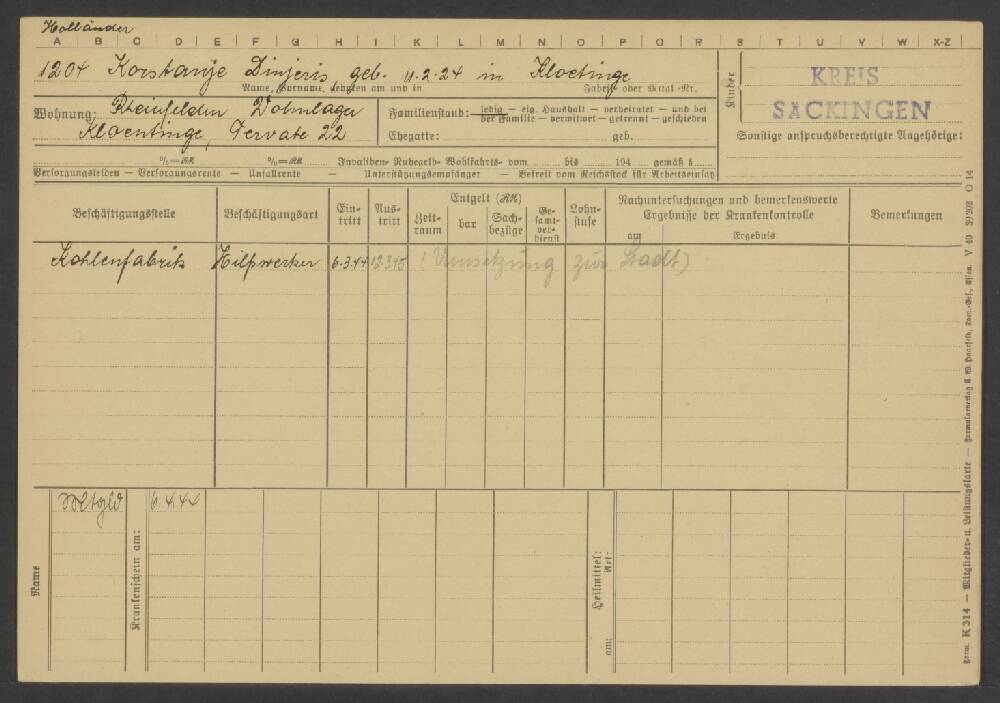 Holländer
A B C D E F G H I K L M N O P Q R S T U V W X-Z
1204 Korstanje Dinjeris, geb. 4.2.24 in Kloetinge
Name, Vorname, geboren am und in Fabrik oder Betr.-Nr.
Kinder
KREIS
SÄCKINGEN
Wohnung: Rheinfelden Wohnlager
Kloentinge, Tervate 22
Familienstand: ledig — eig. Haushalt — verheiratet — und bei
der Familie — verwitwet — getrennt — geschieden
Ehegatte: geb.
Sonstige anspruchsberechtigte Angehörige:
%=RM %=RM Invaliden- Ruhegeld- Wohlfahrts- vom bis 194 gemäß §
Versorgungsleiden — Versorgungsrente — Unfallrente — Unterstützungsempfänger — Befreit vom Reichsstock für Arbeitseinsatz
Beschäftigungsstelle Beschäftigungsart Ein-tritt Aus-tritt Entgelt (RM) Zeit-raum bar Sach-bezüge Ge-samt-ver-dienst Lohn-stufe Nachuntersuchungen und bemerkenswerte Ergebnisse der Krankenkontrolle am Ergebnis Bemerkungen
Kohlenfabrik Hilfwerker 6.3.44 12.3.45 (Umsetzung zur Stadt)
Name
Mtgld
Krankenschein am:
6.4.44
Heilmittel:
Art:
am:
Form. K 314 — Mitglieder- u. Leistungskarte — Formularverlag G. W. Essen. V 40 39202 O 14